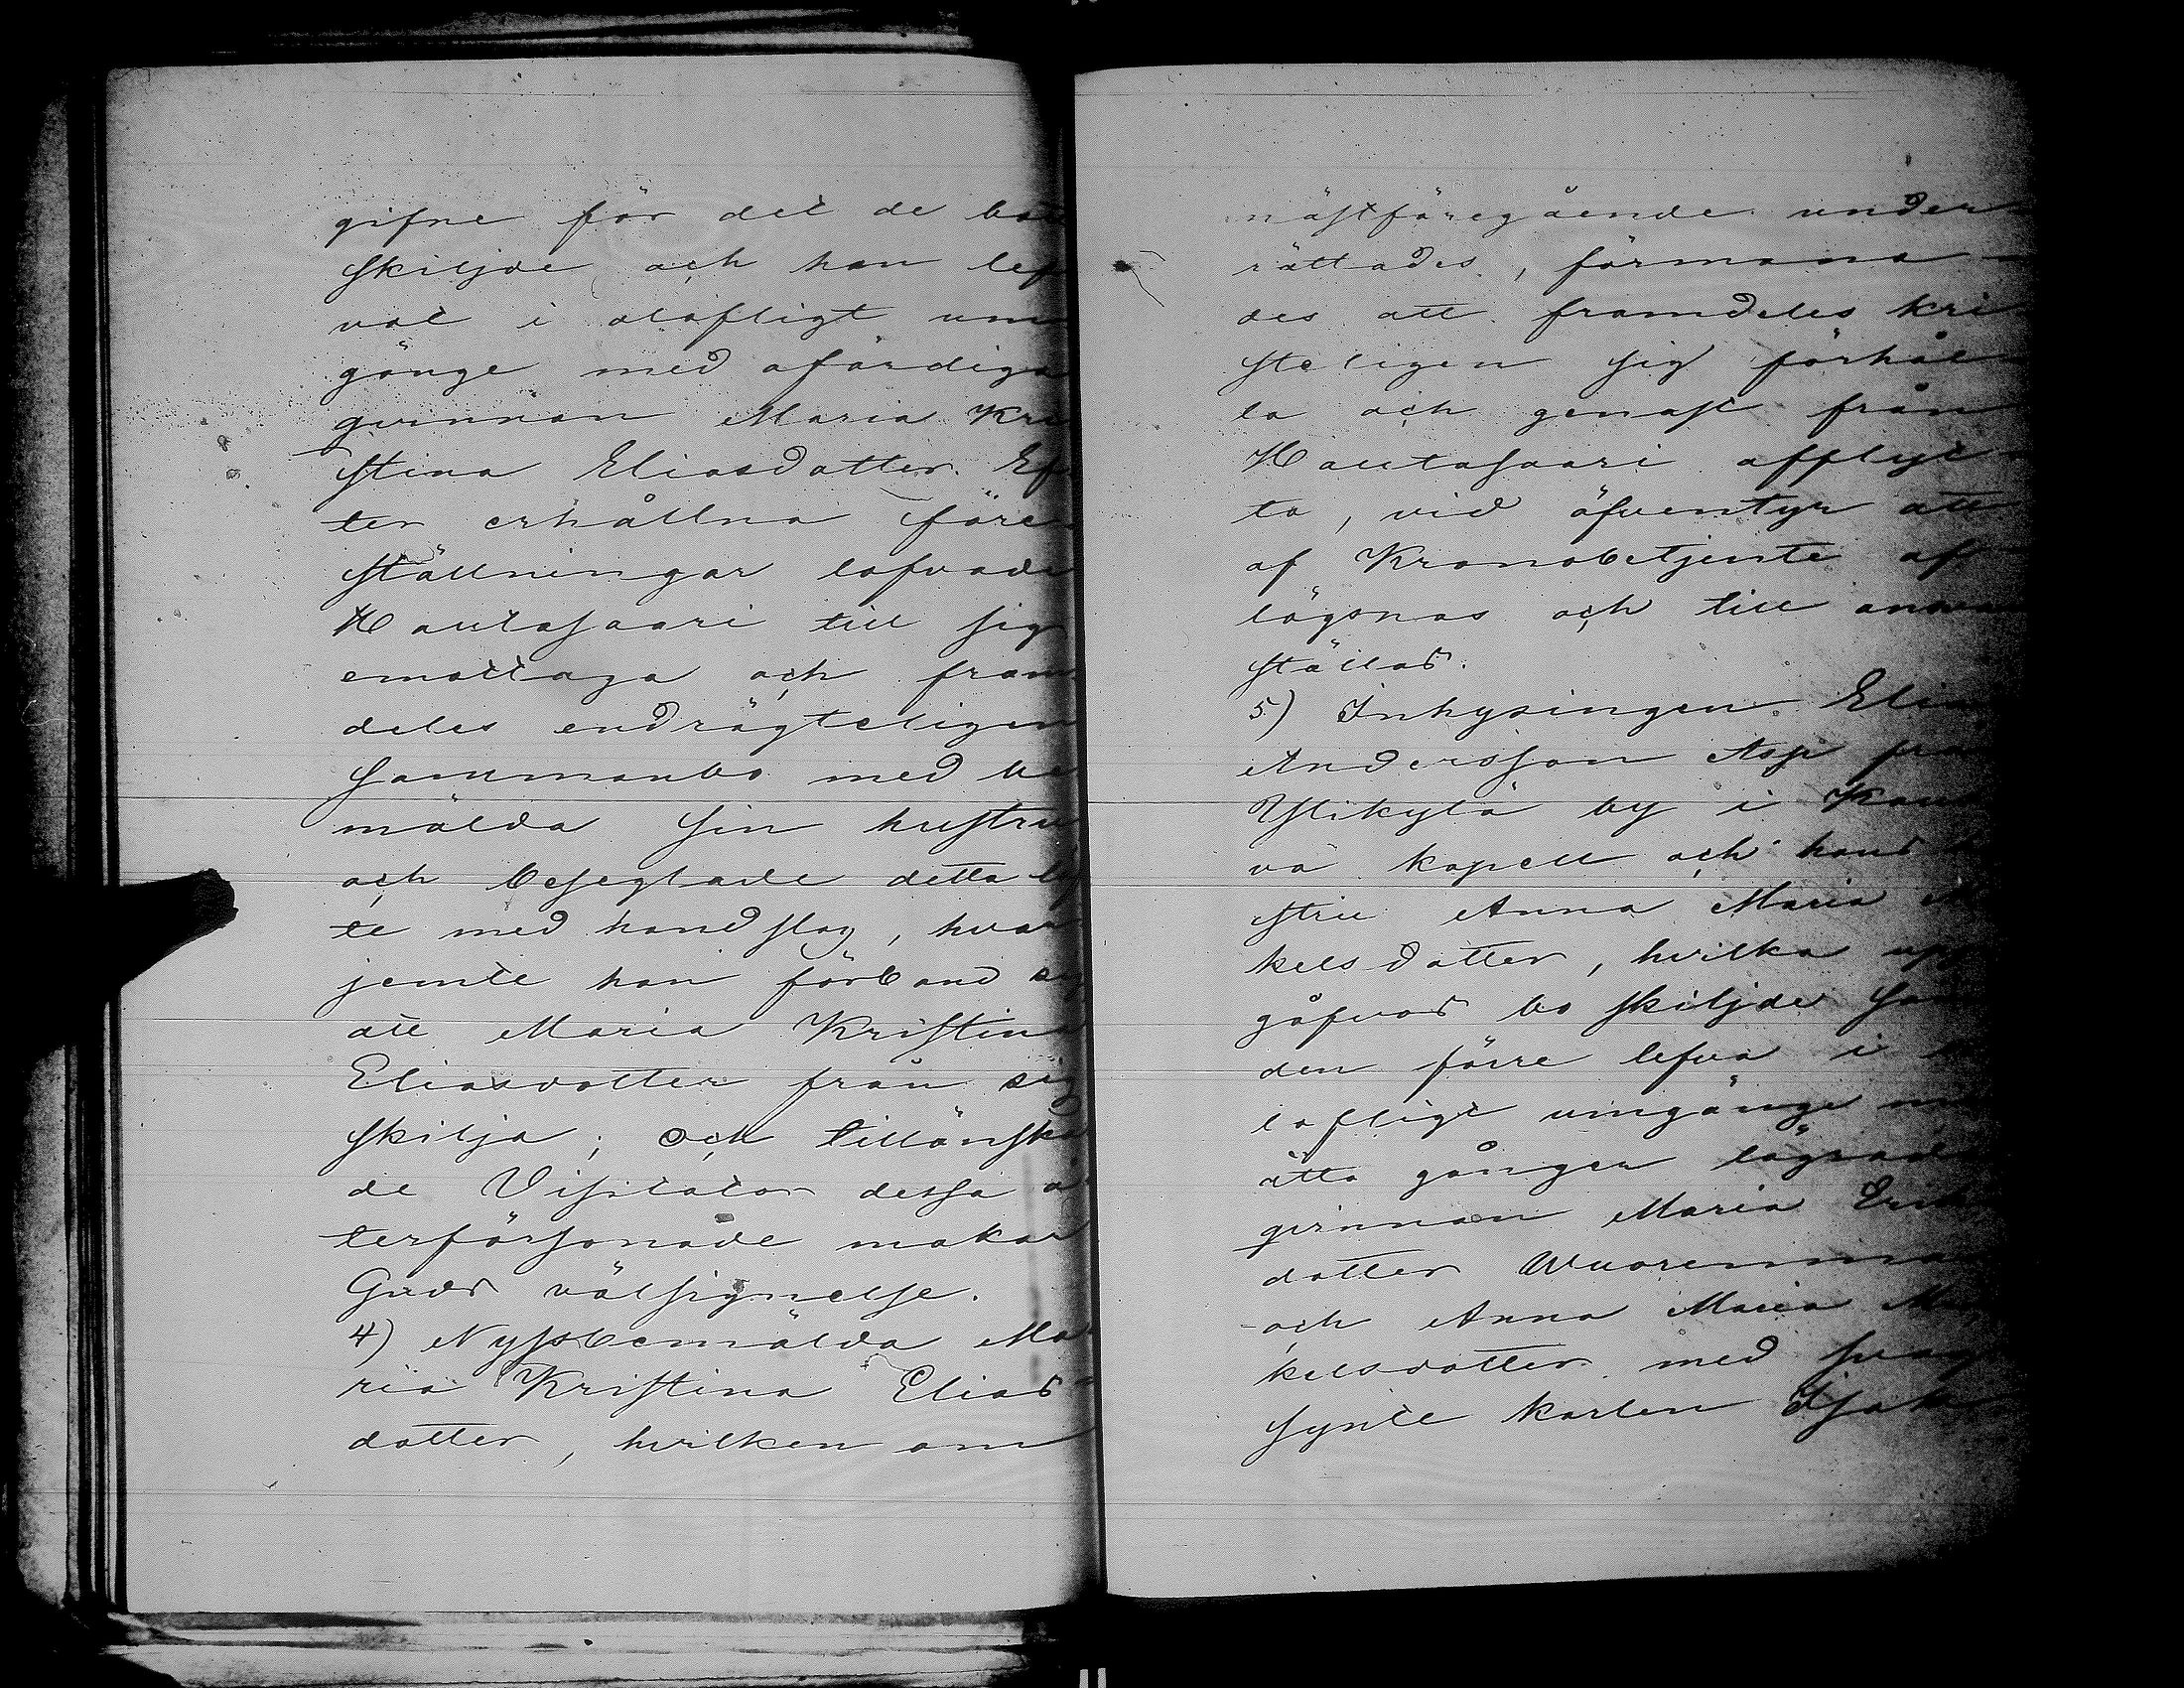 gifne för det de bo
skiljde och han lef
vat i olofligt um
gänge med ofärdiga
qvinnan Maria Kri
stina Eliasdotter. Ef
ter erhållna före
ställningar lofvade
Hautasaari till sig
emottaga och fram
deles endrägteligen
sammanbo med be
mälda sin hustru
och beseglade detta löf
te med handslag, hvar
jemte han förband sig
att Maria Kristina
Eliasdotter från sig
skilja; och tillönska
de Visitator dessa å
terförsonade makar
Guds välsignelse.
4) Nyssbemälda Ma
ria Kristina Elias
dotter, hvilken om
nästföregående under
rättades, förmana
des att framdeles kri
steligen sig förhål
la och genast från
Hautasaari afflyt
ta, vid äfventyr att
af Kronobetjente af
lägsnas och till ansvar
ställas.
5) Inhysingen Elias
Andersson Asp från
Ylikylä by i Kau
va kapell och hans
stru Anna Maria Mi
kelsdotter, hvilka upp
gåfvos bo skiljde sam
den förre lefva i
lofligt umgänge med
åtta gånger lägrade
qvinnan Maria Eriks
dotter Wuorenmaa
och Anna Maria Mi
kelsdotter med svag
synte karlen Isak